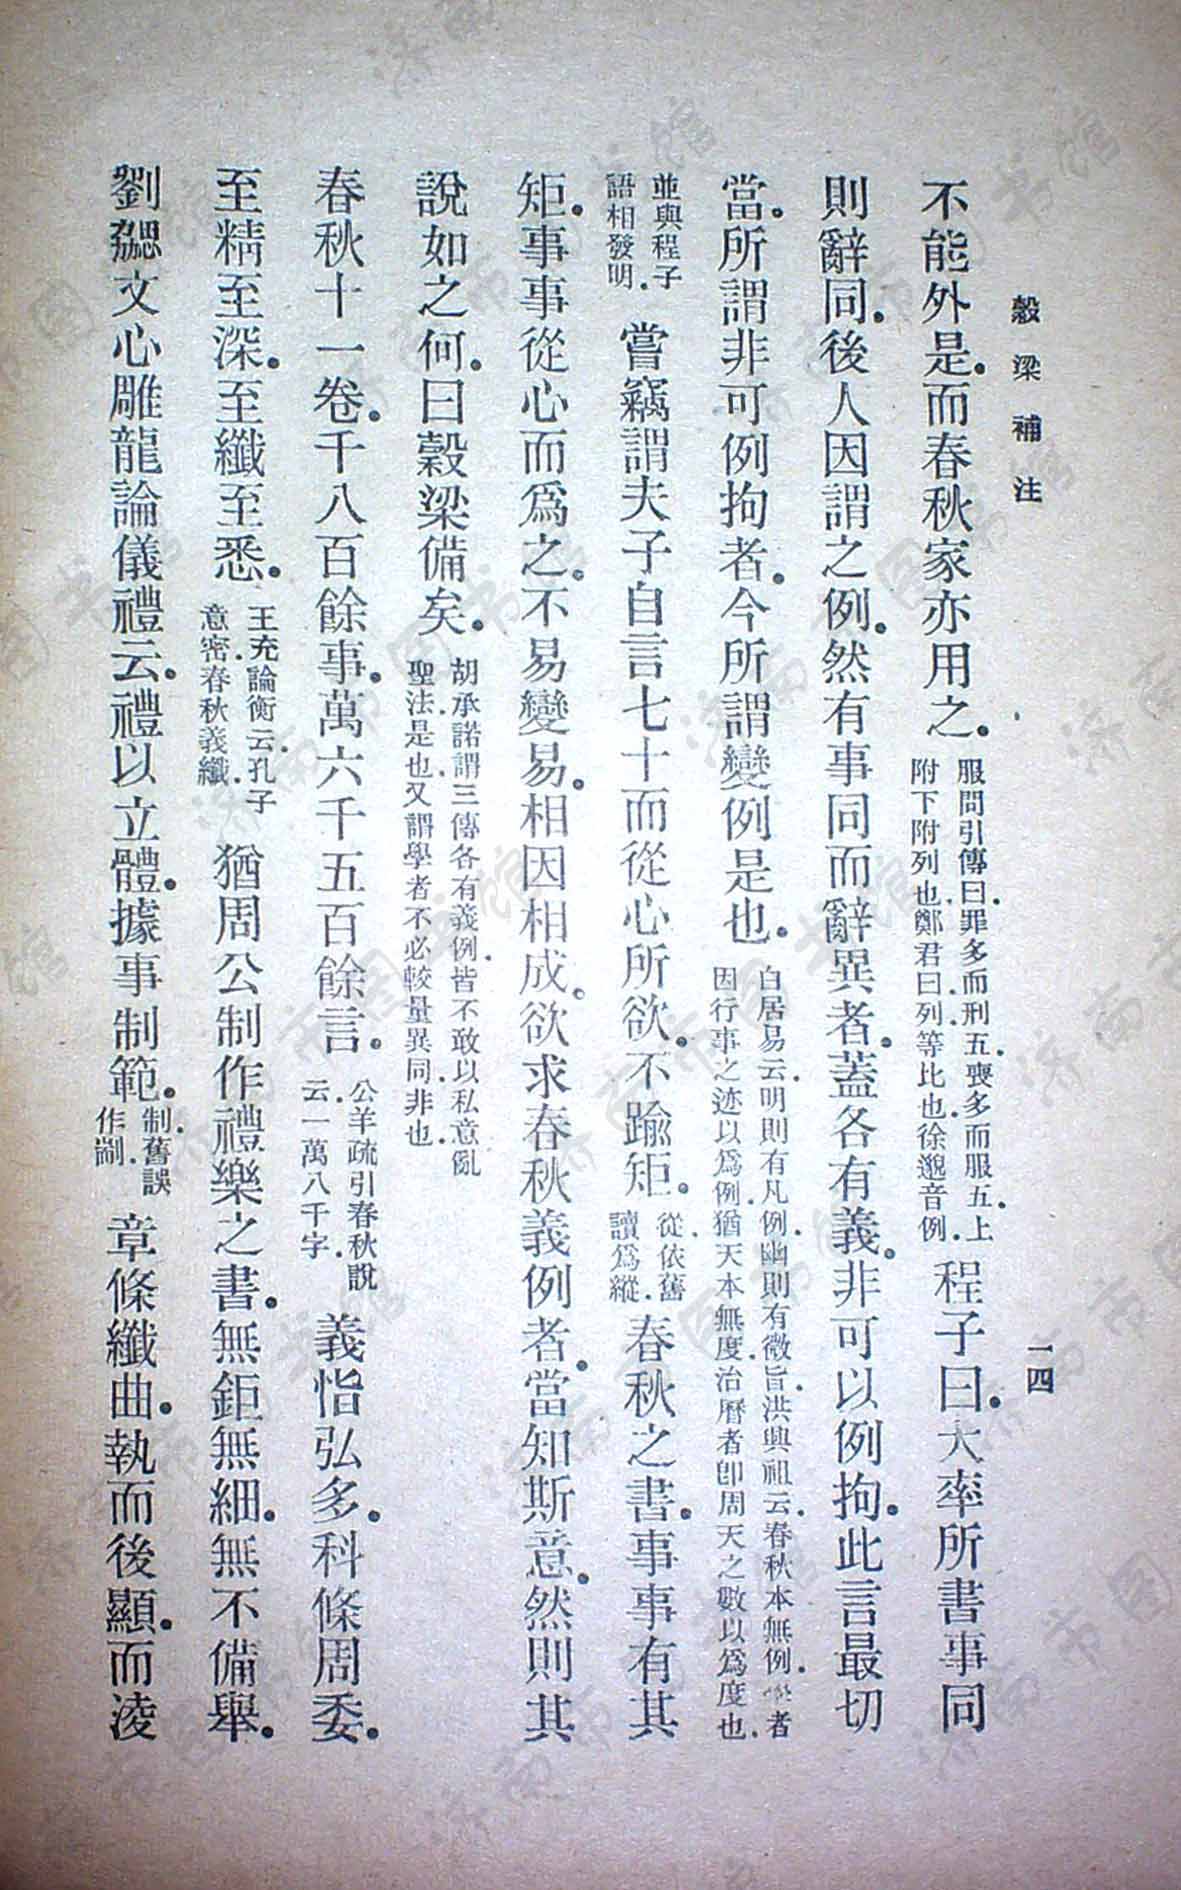 穀梁補注
一四
不能外是。而春秋家亦用之。服問引傳曰。罪多而刑五。喪多而服五。上附下附列也。鄭君曰。列等比也。徐邈音例。程子曰。大率所書事同
則辭同。後人因謂之例。然有事同而辭異者。蓋各有義。非可以例拘。此言最切
當。所謂非可例拘者。今所謂變例是也。白居易云。明則有凡例。幽則有微旨。洪興祖云。春秋本無例。學者因行事之迹以爲例。猶天本無度。治曆者卽周天之數以爲度也。
並與程子語相發明。嘗竊謂夫子自言七十而從心所欲。不踰矩。從。依舊讀爲縱。春秋之書。事事有其
矩。事事從心而爲之。不易變易。相因相成。欲求春秋義例者。當知斯意。然則其
說如之何。曰穀梁備矣。胡承諾謂三傳各有義例。皆不敢以私意亂聖法。是也。又謂學者不必較量異同。非也。
春秋十一卷。千八百餘事。萬六千五百餘言。公羊疏引春秋說云。一萬八千字。義恉弘多。科條周委。
至精至深。至纖至悉。王充論衡云。孔子意密。春秋義纖。猶周公制作禮樂之書。無鉅無細。無不備舉。
劉勰文心雕龍論儀禮云。禮以立體。據事制範。制。舊誤作剬。章條纖曲。執而後顯。而凌